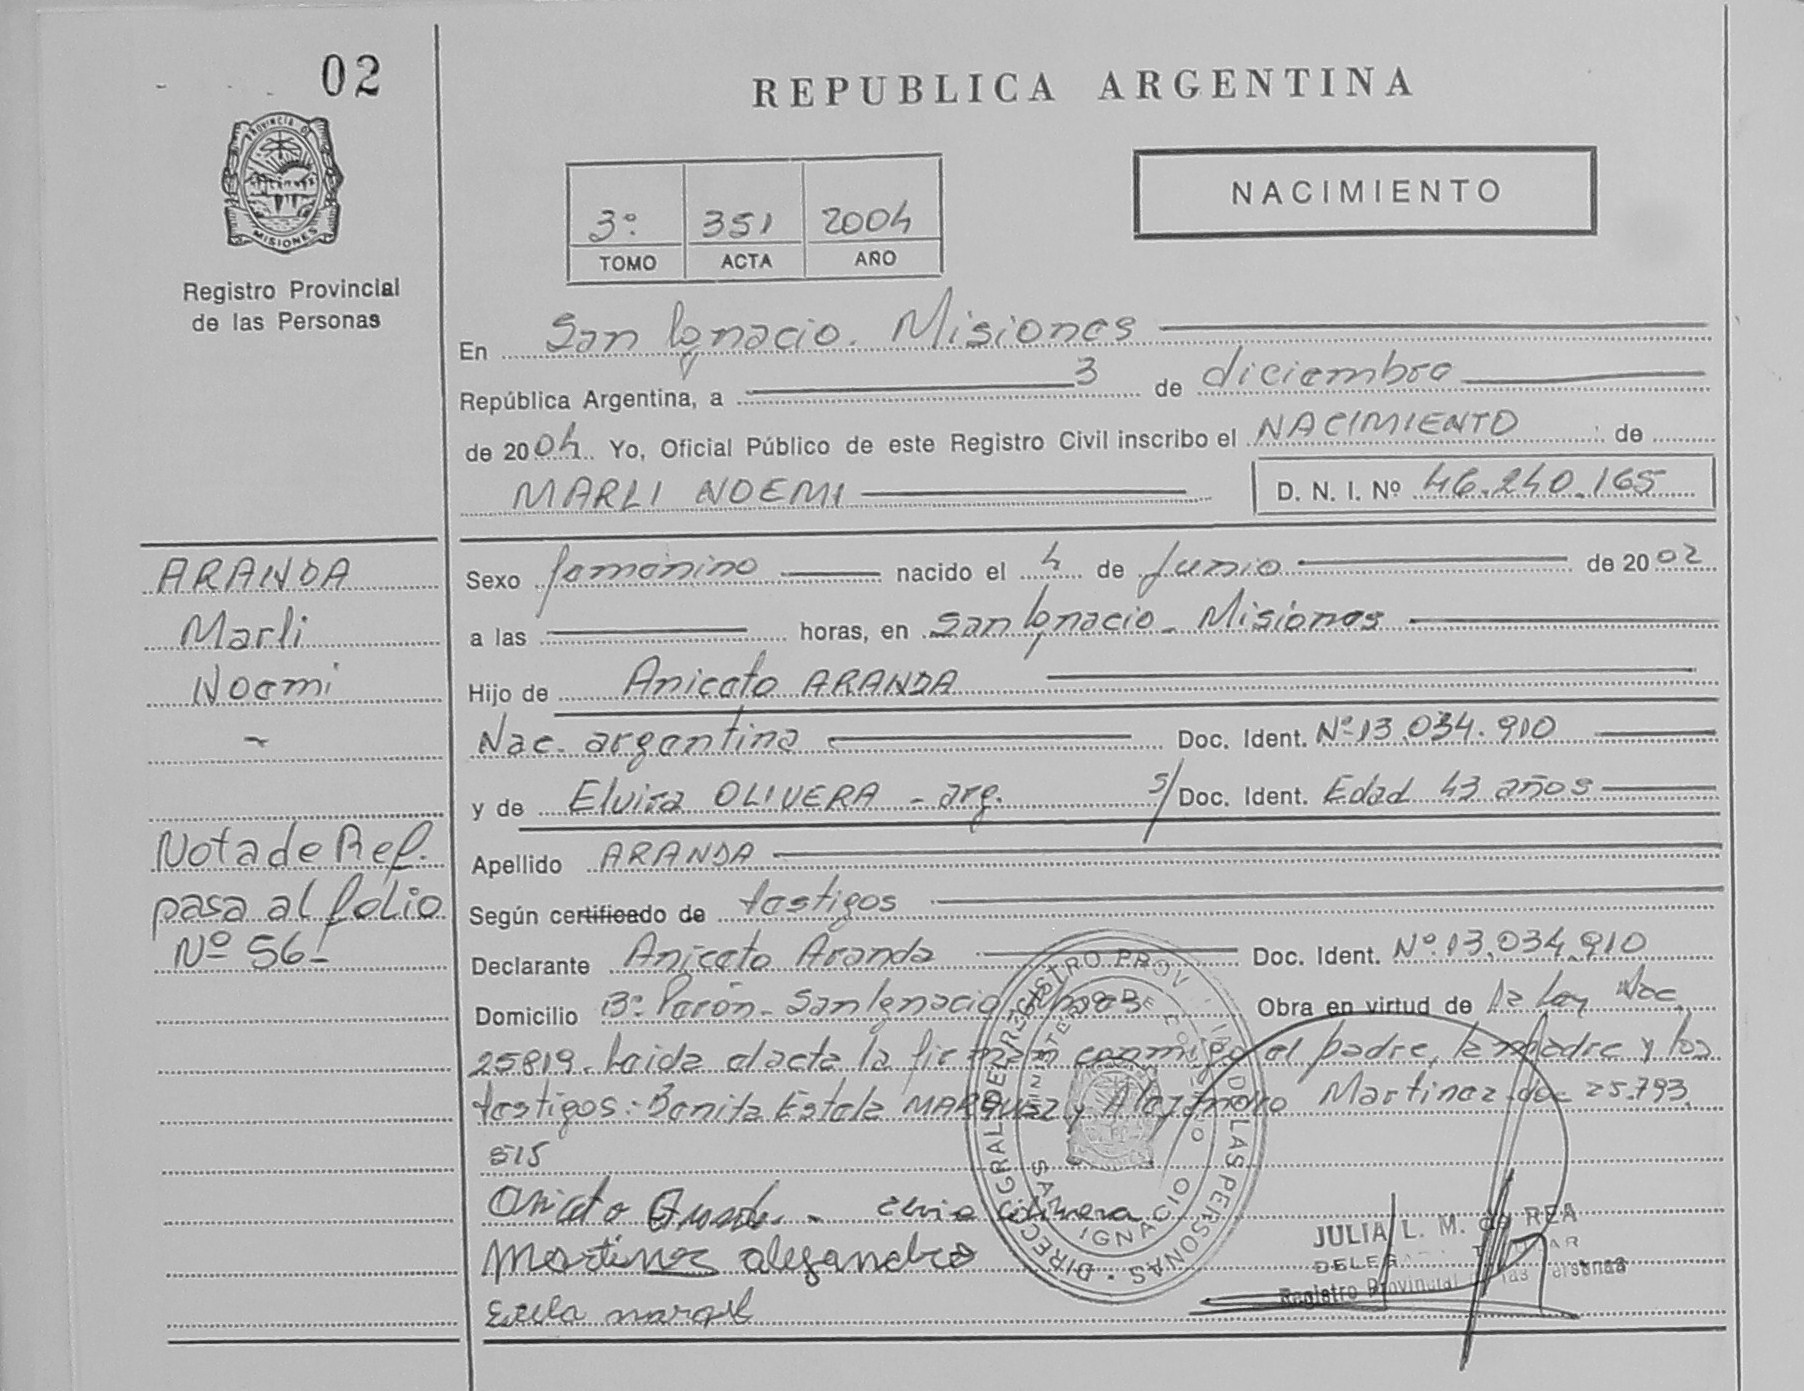 02
PROVINCIA DE
MISIONES
Registro Provincial
de las Personas
REPUBLICA ARGENTINA
NACIMIENTO
3º 351 2004
TOMO ACTA AÑO
En San Ignacio. Misiones
República Argentina, a 3 de diciembre
de 2004 Yo, Oficial Público de este Registro Civil inscribo el NACIMIENTO de
MARLI NOEMI D. N. I. Nº 46.240.165
ARANDA
Marli
Noemi
Nota de Ref.
pasa al folio
Nº 56-
Sexo femenino nacido el 4 de Junio de 2002
a las horas, en San Ignacio - Misiones
Hijo de Aniceto ARANDA
Nac. argentina Doc. Ident. Nº 13.034.910
y de Elvira OLIVERA - arg. s/ Doc. Ident. Edad 43 años
Apellido ARANDA
Según certificado de testigos
Declarante Aniceto Aranda Doc. Ident. Nº 13.034.910
Domicilio Bº Perón - San Ignacio Mnes Obra en virtud de la Ley Nac.
25819. Leida el acta la firman conmigo el padre, la madre y los
testigos: Benita Estela MARQUEZ y Alejandro Martinez doc 25.793.
515
Martinez alejandro
DIREC. GRAL. DEL REGISTRO PROVINCIAL DE LAS PERSONAS
MINISTERIO DE GOBIERNO
SAN IGNACIO
JULIA L. M. de REA
DELEGADA TITULAR
Registro Provincial de las Personas